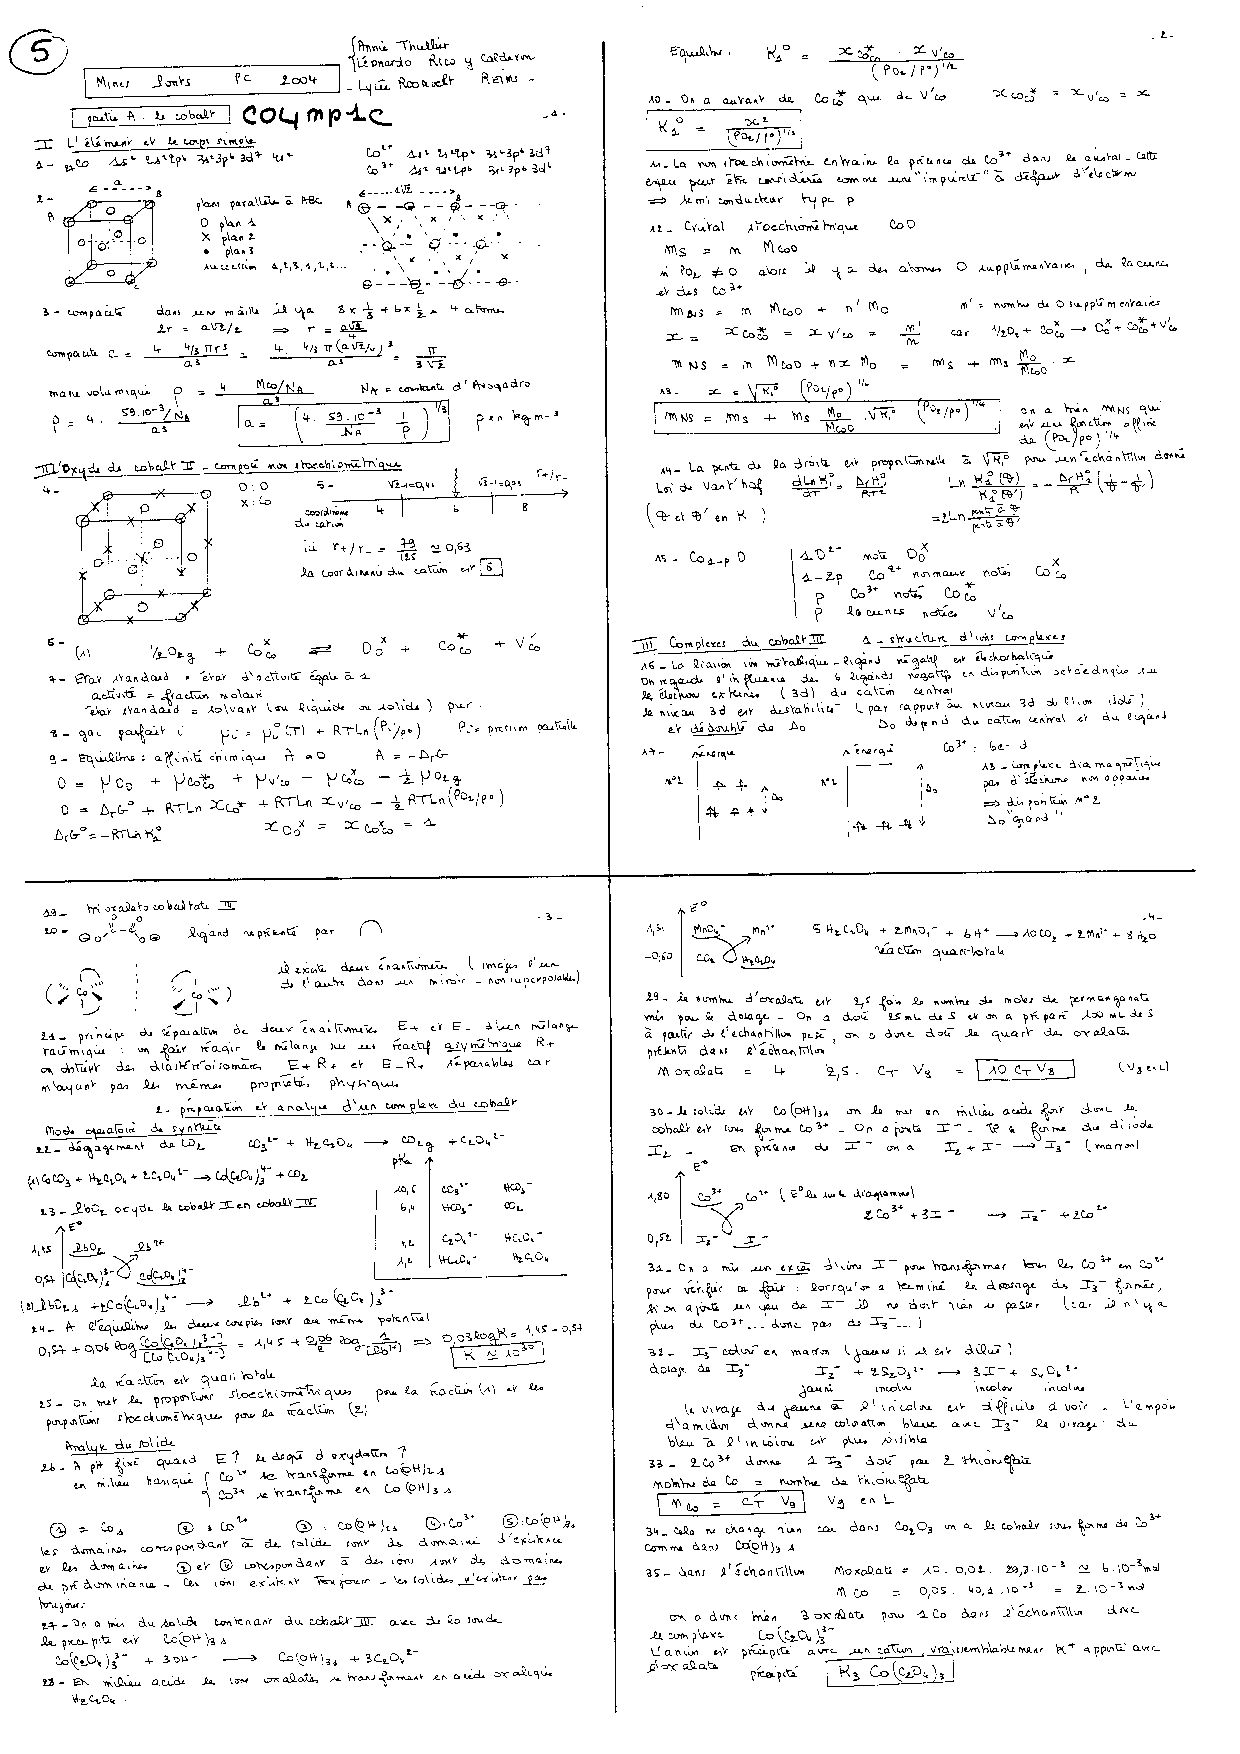 5
Annie Thullier
Léonardo Rico y Calderon
Lycée Roosvelt Reims -
Mines Ponts PC 2004
partie A : le cobalt
COLYMPIC
-1-
I L'élément et le corps simple
1- 27Co 1s² 2s²2p⁶ 3s²3p⁶3d⁷ 4s²
Co²⁺ 1s² 2s²2p⁶ 3s²3p⁶3d⁷
Co³⁺ 1s² 2s²2p⁶ 3s²3p⁶3d⁶
2-
a
A
B
C
plans parallèle à ABC
O plan 1
X plan 2
• plan 3
succession 1,2,3,1,2,3...
a√2
A
B
C
3- compacité dans une maille il y a 8x1/8 + 6x1/2 = 4 atomes
2r = a√2/2 ⇒ r = a√2/4
compacité C = 4 4/3πr³/a³ = 4. 4/3π(a√2/4)³/a³ = π/3√2
masse volumique ρ = 4 MCo/NA / a³ NA = constante d'Avogadro
ρ = 4. 59.10⁻³/NA / a³ a = (4. 59.10⁻³/NA 1/ρ)^1/3 ρ en kg m⁻³
II L'Oxyde de cobalt II - composé non stoechiométrique
4- O : O
X : Co
5- √2-1=0,41 √3-1=0,73 r+/r-
coordinence du cation 4 6 8
ici r+/r- = 79/125 ≃ 0,63
la coordinence du cation est 6
6- (1) 1/2 O2g + CoCo^x ⇌ OO^x + CoCo^* + V'Co
7- Etat standard = état d'activité égale à 1
activité = fraction molaire
état standard = solvant (ou liquide ou solide) pur.
8- gaz parfait i μi = μi°(T) + RTLn(Pi/p°) Pi = pression partielle
9- Equilibre : affinité chimique A = 0 A = -ΔrG
0 = μOO + μCoCo^* + μV'Co - μCoCo^x - 1/2 μO2g
0 = ΔrG° + RTLn xCoCo^* + RTLn xV'Co - 1/2 RTLn(PO2/p°)
ΔrG° = -RTLnK1° xOO^x = xCoCo^x = 1
-2-
Equilibre. K1° = xCoCo^* . xV'Co / (PO2/p°)^1/2
10- On a autant de CoCo^* que de V'Co xCoCo^* = xV'Co = x
K1° = x²/(PO2/p°)^1/2
11- La non stoechiométrie entraine la présence de Co³⁺ dans le cristal - Cette
espèce peut être considérée comme une "impureté" à défaut d'électron
⇒ semi conducteur type p
12- Cristal stoechiométrique CoO
mS = n MCoO
si PO2 ≠ 0 alors il y a des atomes O supplémentaires, des lacunes
et des Co³⁺
mNS = n MCoO + n' MO n' = nombre de O supplémentaires
x = xCoCo^* = xV'Co = n'/n car 1/2O2 + CoCo^x → OO^x + CoCo^* + V'Co
mNS = n MCoO + nx MO = mS + mS MO/MCoO . x
13- x = √K1° (PO2/p°)^1/4
mNS = mS + mS MO/MCoO . √K1° (PO2/p°)^1/4 on a bien mNS qui
est une fonction affine
de (PO2/p°)^1/4
14- La pente de la droite est proportionnelle à √K1° pour un échantillon donné
Loi de Vant'hoff dLnK1°/dT = ΔrH°/RT² Ln K1°(θ)/K1°(θ') = -ΔrH°/R (1/θ - 1/θ')
(θ et θ' en K) = 2Ln pente à θ/pente à θ'
15- Co1-pO 1 O²⁻ noté OO^x
1-3p Co²⁺ normaux notés CoCo^x
p Co³⁺ notés CoCo^*
p lacunes notées V'Co
III Complexes du cobalt III 1- structure d'ions complexes
16- La liaison ion métallique - ligand négatif est électrostatique
On regarde l'influence des 6 ligands négatifs en disposition octaédrique sur
les électrons externes (3d) du cation central
le niveau 3d est destabilisé (par rapport au niveau 3d de l'ion isolé)
et dédoublé de Δo Δo dépend du cation central et du ligand
17- énergie énergie Co³⁺ : 6e⁻ d
n°1 Δo n°2 Δo
18- complexe diamagnétique
pas d'électrons non appariés
⇒ disposition n°2
Δo "grand"
-3-
19- trioxalatocobaltate III
20- ligand représenté par ⌒
il existe deux énantiomères (images l'un
de l'autre dans un miroir - non superposables)
21- principe de séparation de deux énantiomères E+ et E- d'un mélange
racémique : on fait réagir le mélange sur un réactif asymétrique R+
on obtient des diastéréoisomères E+R+ et E-R+ séparables car
n'ayant pas les mêmes propriétés physiques
2- préparation et analyse d'un complexe du cobalt
Mode opératoire de synthèse
22- dégagement de CO2 CO3²⁻ + H2C2O4 → CO2g + C2O4²⁻
(1) CoCO3 + H2C2O4 + 2C2O4²⁻ → Co(C2O4)3⁴⁻ + CO2
pKa
10,5 CO3²⁻ HCO3⁻
6,4 HCO3⁻ CO2
4,2 C2O4²⁻ HC2O4⁻
1,2 HC2O4⁻ H2C2O4
23- PbO2 oxyde le cobalt II en cobalt III
E°
1,45 PbO2 Pb²⁺
0,57 Co(C2O4)3³⁻ Co(C2O4)3⁴⁻
(2) PbO2s + 2Co(C2O4)3⁴⁻ → Pb²⁺ + 2Co(C2O4)3³⁻
24- A l'équilibre les deux couples sont au même potentiel
0,57 + 0,06 log [Co(C2O4)3³⁻]/[Co(C2O4)3⁴⁻] = 1,45 + 0,06/2 log 1/[Pb²⁺] ⇒ 0,03 log K = 1,45 - 0,57
K ≃ 10³⁰
la réaction est quasi totale
25- On met les proportions stoechiométriques pour la réaction (1) et les
proportions stoechiométriques pour la réaction (2)
Analyse du solide
26- A pH fixé quand E↑ le degré d'oxydation ↑
en milieu basique Co²⁺ se transforme en Co(OH)2s
Co³⁺ se transforme en Co(OH)3s
① = Cos ② : Co²⁺ ③ : Co(OH)2s ④ : Co³⁺ ⑤ : Co(OH)3s
les domaines correspondant à des solides sont des domaines d'existence
et les domaines ② et ④ correspondant à des ions sont des domaines
de prédominance - Les ions existent toujours - les solides n'existent pas
toujours
27- On a mis du solide contenant du cobalt III avec de la soude
le précipité est Co(OH)3s
Co(C2O4)3³⁻ + 3OH⁻ → Co(OH)3s + 3C2O4²⁻
28- En milieu acide les ions oxalates se transforment en acide oxalique
H2C2O4.
-4-
E°
1,51 MnO4⁻ Mn²⁺
-0,60 CO2 H2C2O4
5H2C2O4 + 2MnO4⁻ + 6H⁺ → 10CO2 + 2Mn²⁺ + 8H2O
réaction quasi-totale
29- le nombre d'oxalate est 2,5 fois le nombre de moles de permanganate
mis pour le dosage - On a dosé 25 mL de S et on a préparé 100 mL de S
à partir de l'échantillon pesé, on a donc dosé le quart des oxalates
présents dans l'échantillon
n oxalate = 4 2,5. CT V8 = 10 CT V8 (V8 en L)
30- le solide est Co(OH)3s on le met en milieu acide fort donc le
cobalt est sous forme Co³⁺ - On ajoute I⁻ - Il se forme du diiode
I2 - En présence de I⁻ on a I2 + I⁻ → I3⁻ (marron)
E°
1,80 Co³⁺ Co²⁺ (E° lu sur le diagramme)
0,52 I3⁻ I⁻
2Co³⁺ + 3I⁻ → I3⁻ + 2Co²⁺
31- On a mis un excès d'ions I⁻ pour transformer tous les Co³⁺ en Co²⁺
pour vérifier ce fait : lorsqu'on a terminé le dosage des I3⁻ formés,
si on ajoute un peu de I⁻ il ne doit rien se passer (car il n'y a
plus de Co³⁺... donc pas de I3⁻...)
32- I3⁻ coloré en marron (jaune s'il est dilué)
dosage de I3⁻ I3⁻ + 2S2O3²⁻ → 3I⁻ + S4O6²⁻
jaune incolore incolore incolore
Le virage du jaune à l'incolore est difficile à voir - L'empois
d'amidon donne une coloration bleue avec I3⁻ le virage du
bleu à l'incolore est plus visible
33- 2Co³⁺ donne 1 I3⁻ dosé par 2 thiosulfate
Nombre de Co = nombre de thiosulfate
nCo = C'T V9 V9 en L
34- Cela ne change rien car dans Co2O3 on a le cobalt sous forme de Co³⁺
comme dans Co(OH)3s
35- dans l'échantillon n oxalate = 10. 0,02. 29,7.10⁻³ ≃ 6.10⁻³ mol
n Co = 0,05. 40,1.10⁻³ = 2.10⁻³ mol
on a donc bien 3 oxalate pour 1 Co dans l'échantillon donc
le complexe Co(C2O4)3³⁻
L'anion est précipité avec un cation, vraisemblablement K⁺ apporté avec
l'oxalate précipité K3 Co(C2O4)3